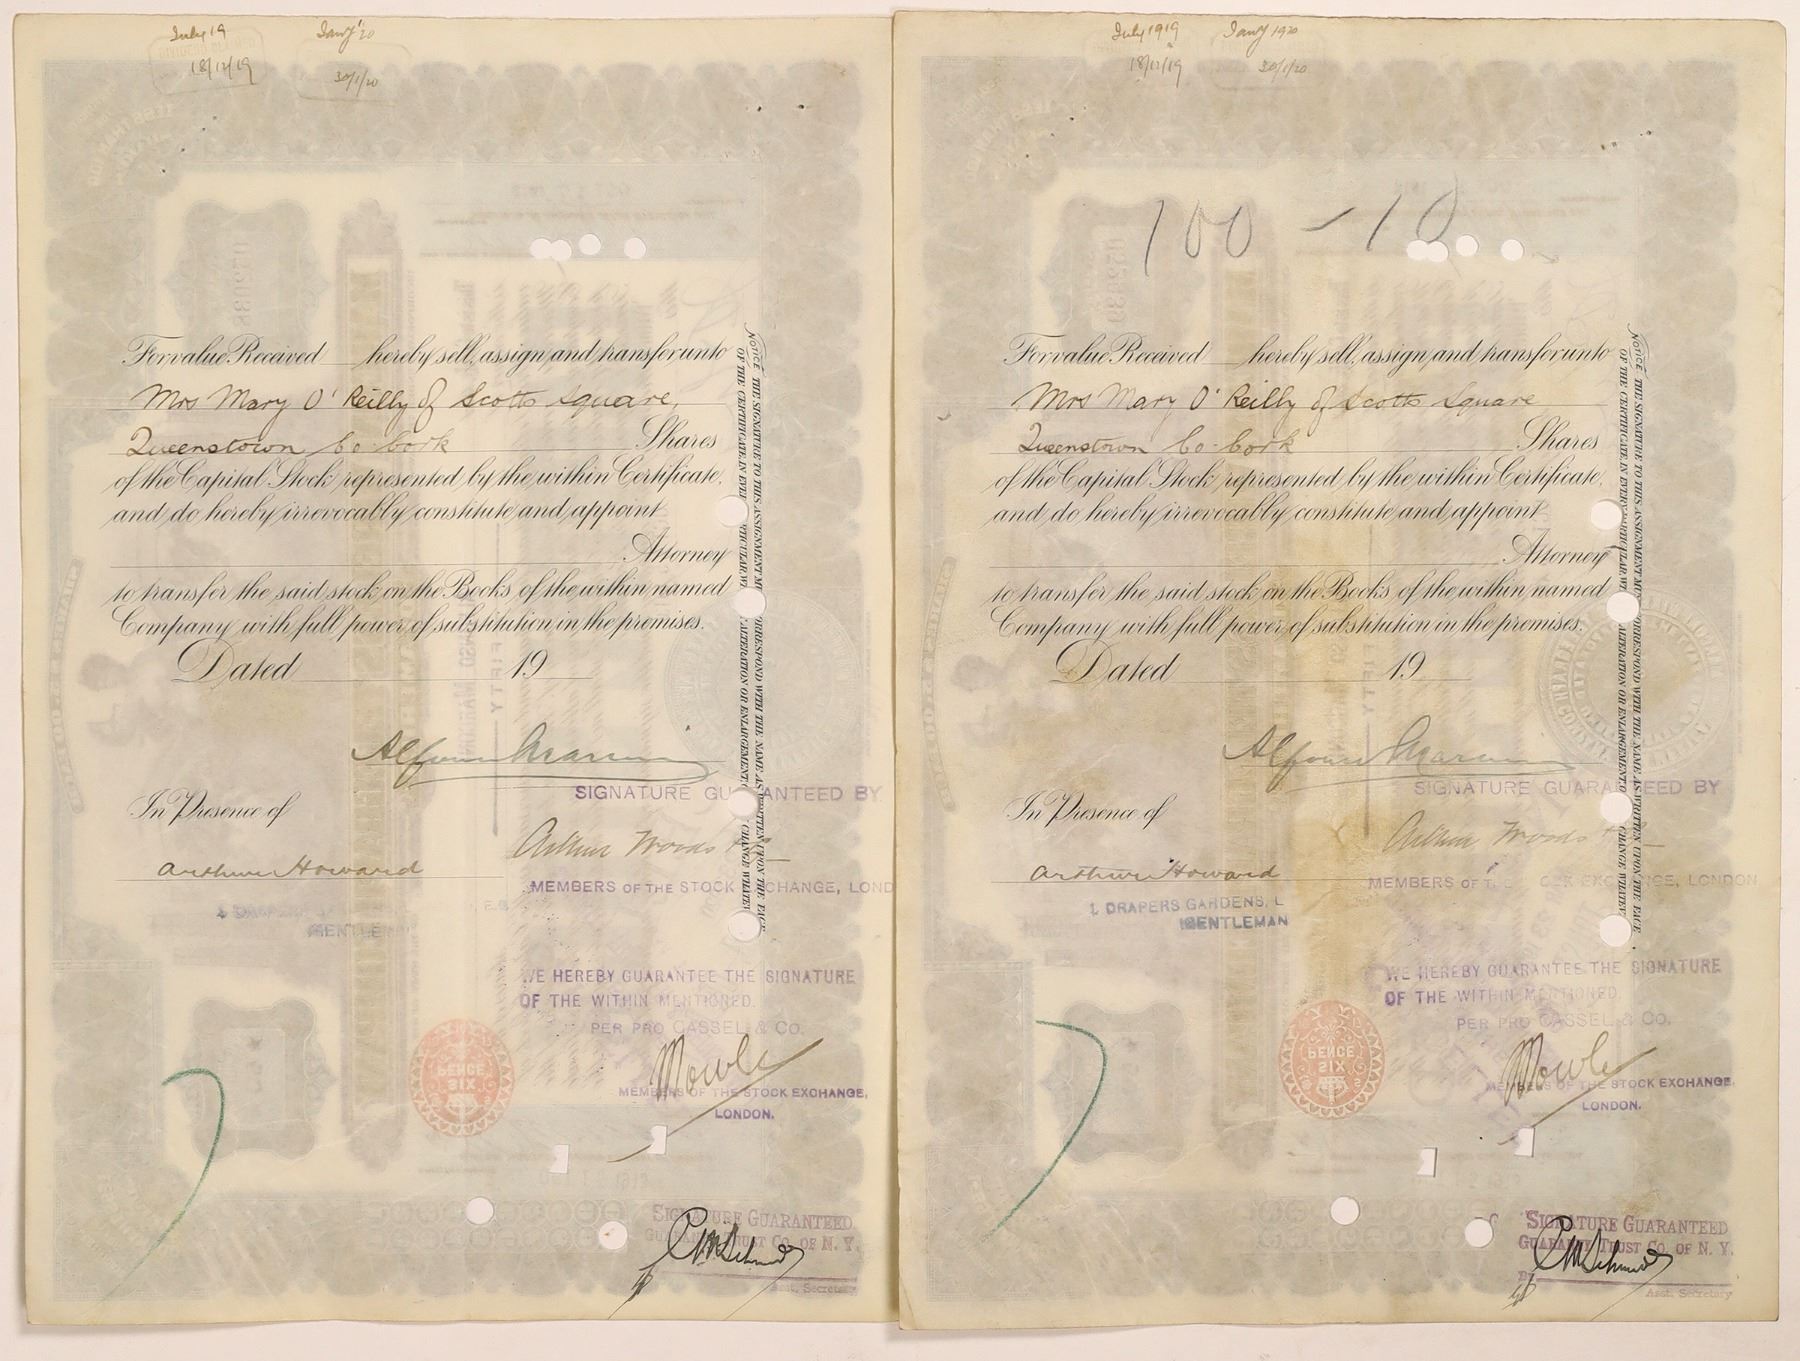 July 19
Jany '20
18/12/19
30/1/20
For value Received hereby sell, assign, and transfer unto
Mrs Mary O' Reilly of Scotts Square,
Queenstown Co. Cork Shares
of the Capital Stock, represented by the within Certificate,
and do hereby irrevocably constitute and appoint
Attorney
to transfer the said stock on the Books of the within named
Company with full power of substitution in the premises.
Dated 19
NOTICE THE SIGNATURE TO THIS ASSIGNMENT CORRESPOND WITH THE NAME AS WRITTEN UPON THE FACE
OF THE CERTIFICATE, IN EVERY PARTICULAR, ALTERATION OR ENLARGEMENT, CHANGE WHATEVER
SIGNATURE GUARANTEED BY
In Presence of
Arthur Woods
Arthur Howard
MEMBERS OF THE STOCK EXCHANGE, LOND
DRAPERS
GENTLEM
WE HEREBY GUARANTEE THE SIGNATURE
OF THE WITHIN MENTIONED.
PER PRO CASSEL & Co.
MEMBERS OF THE STOCK EXCHANGE,
LONDON.
PENCE
SIX
SIGNATURE GUARANTEED
GUARANTY TRUST CO. OF N. Y.
Asst. Secretary
July 1919
Jany 1920
18/12/19
30/1/20
100 - 10
For value Received hereby sell, assign, and transfer unto
Mrs Mary O' Reilly of Scotts Square
Queenstown Co. Cork Shares
of the Capital Stock, represented by the within Certificate,
and do hereby irrevocably constitute and appoint
Attorney
to transfer the said stock on the Books of the within named
Company with full power of substitution in the premises.
Dated 19
NOTICE THE SIGNATURE TO THIS ASSIGNMENT CORRESPOND WITH THE NAME AS WRITTEN UPON THE FACE
OF THE CERTIFICATE, IN EVERY PARTICULAR, ALTERATION OR ENLARGEMENT, CHANGE WHATEVER
SIGNATURE GUARANTEED BY
In Presence of
Arthur Woods
Arthur Howard
MEMBERS OF THE STOCK EXCHANGE, LONDON
1 DRAPERS GARDENS, L
GENTLEMAN
WE HEREBY GUARANTEE THE SIGNATURE
OF THE WITHIN MENTIONED.
PER PRO CASSEL & Co.
MEMBERS OF THE STOCK EXCHANGE.
LONDON.
PENCE
SIX
SIGNATURE GUARANTEED
GUARANTY TRUST CO. OF N. Y.
Asst. Secretary